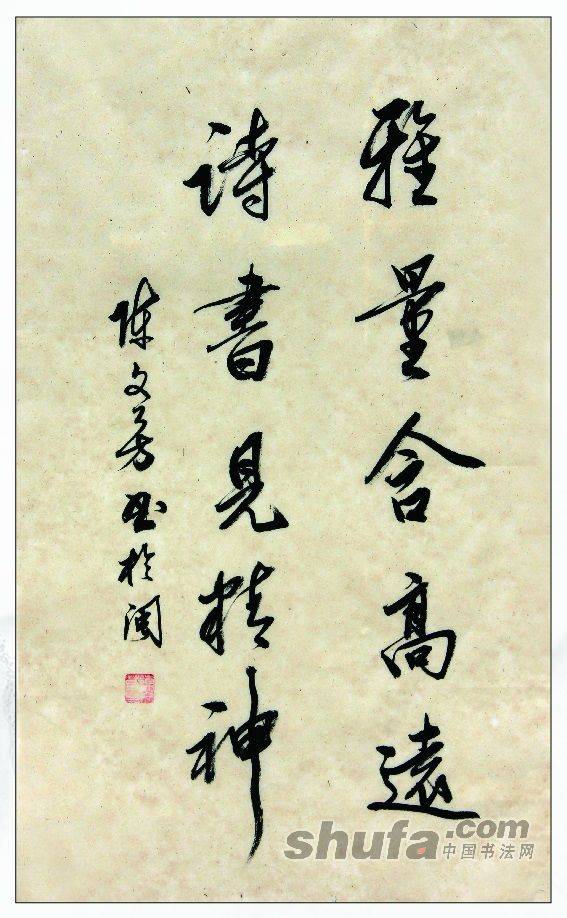 雅量含高遠
詩書見精神
陳文芳书於闽
shufa.com
中国书法网